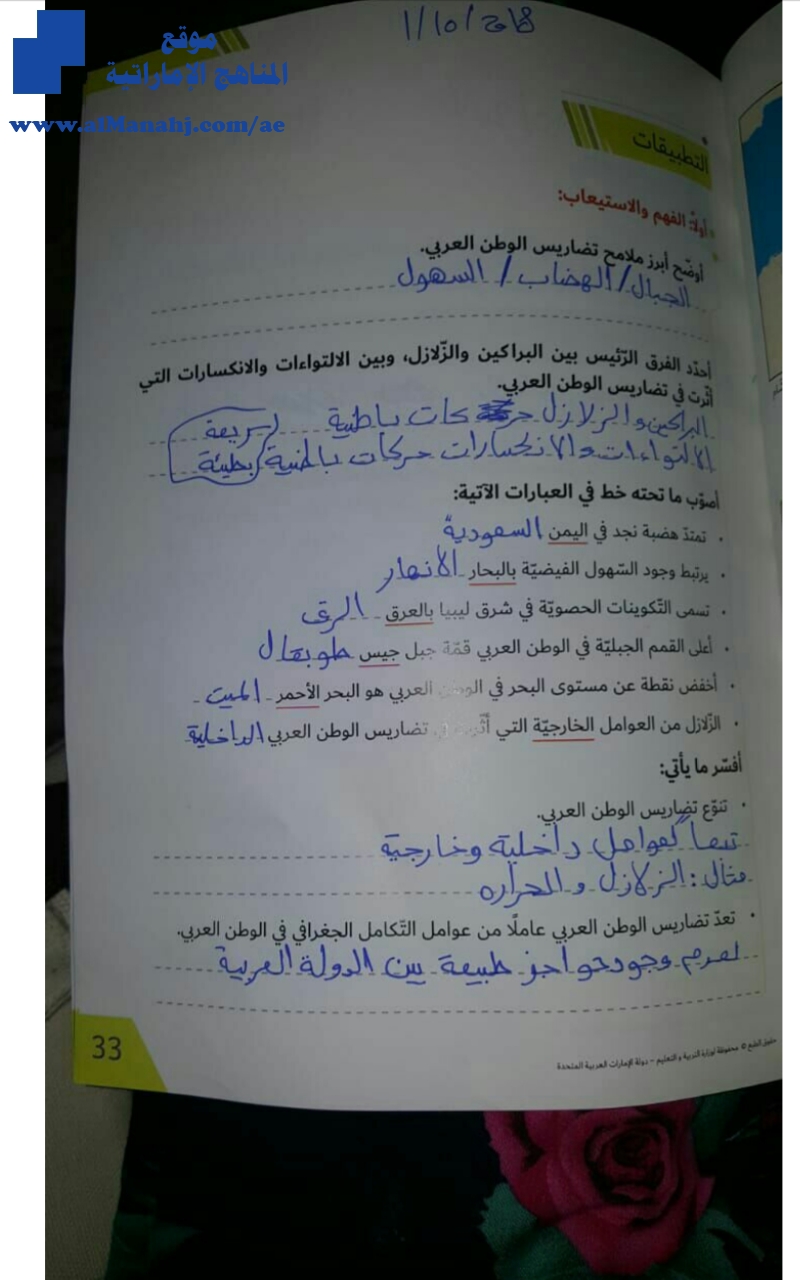 موقع
المناهج الإماراتية
www.alManahj.com/ae
1/10/2018
التطبيقات
أولًا: الفهم والاستيعاب:
أوضّح أبرز ملامح تضاريس الوطن العربي.
الجبال / الهضاب / السهول
أحدّد الفرق الرّئيس بين البراكين والزّلازل، وبين الالتواءات والانكسارات التي
أثّرت في تضاريس الوطن العربي.
البراكين و الزلازل حركات باطنية سريعة
الالتواءات والانكسارات حركات باطنية بطيئة
أصوّب ما تحته خط في العبارات الآتية:
تمتدّ هضبة نجد في اليمن السعودية
يرتبط وجود السّهول الفيضيّة بالبحار الأنهار
تسمى التّكوينات الحصويّة في شرق ليبيا بالعرق الرق
أعلى القمم الجبليّة في الوطن العربي قمّة جبل جيس طوبقال
أخفض نقطة عن مستوى البحر في الوطن العربي هو البحر الأحمر الميت
الزّلازل من العوامل الخارجيّة التي أثّرت في تضاريس الوطن العربي الداخلية
أفسّر ما يأتي:
تنوّع تضاريس الوطن العربي.
تبعاً لعوامل داخلية وخارجية
مثال: الزلازل و الحراره
تعدّ تضاريس الوطن العربي عاملًا من عوامل التّكامل الجغرافي في الوطن العربي.
لعدم وجود حواجز طبيعة بين الدولة العربية
33
حقوق الطبع © محفوظة لوزارة التربية و التعليم - دولة الإمارات العربية المتحدة